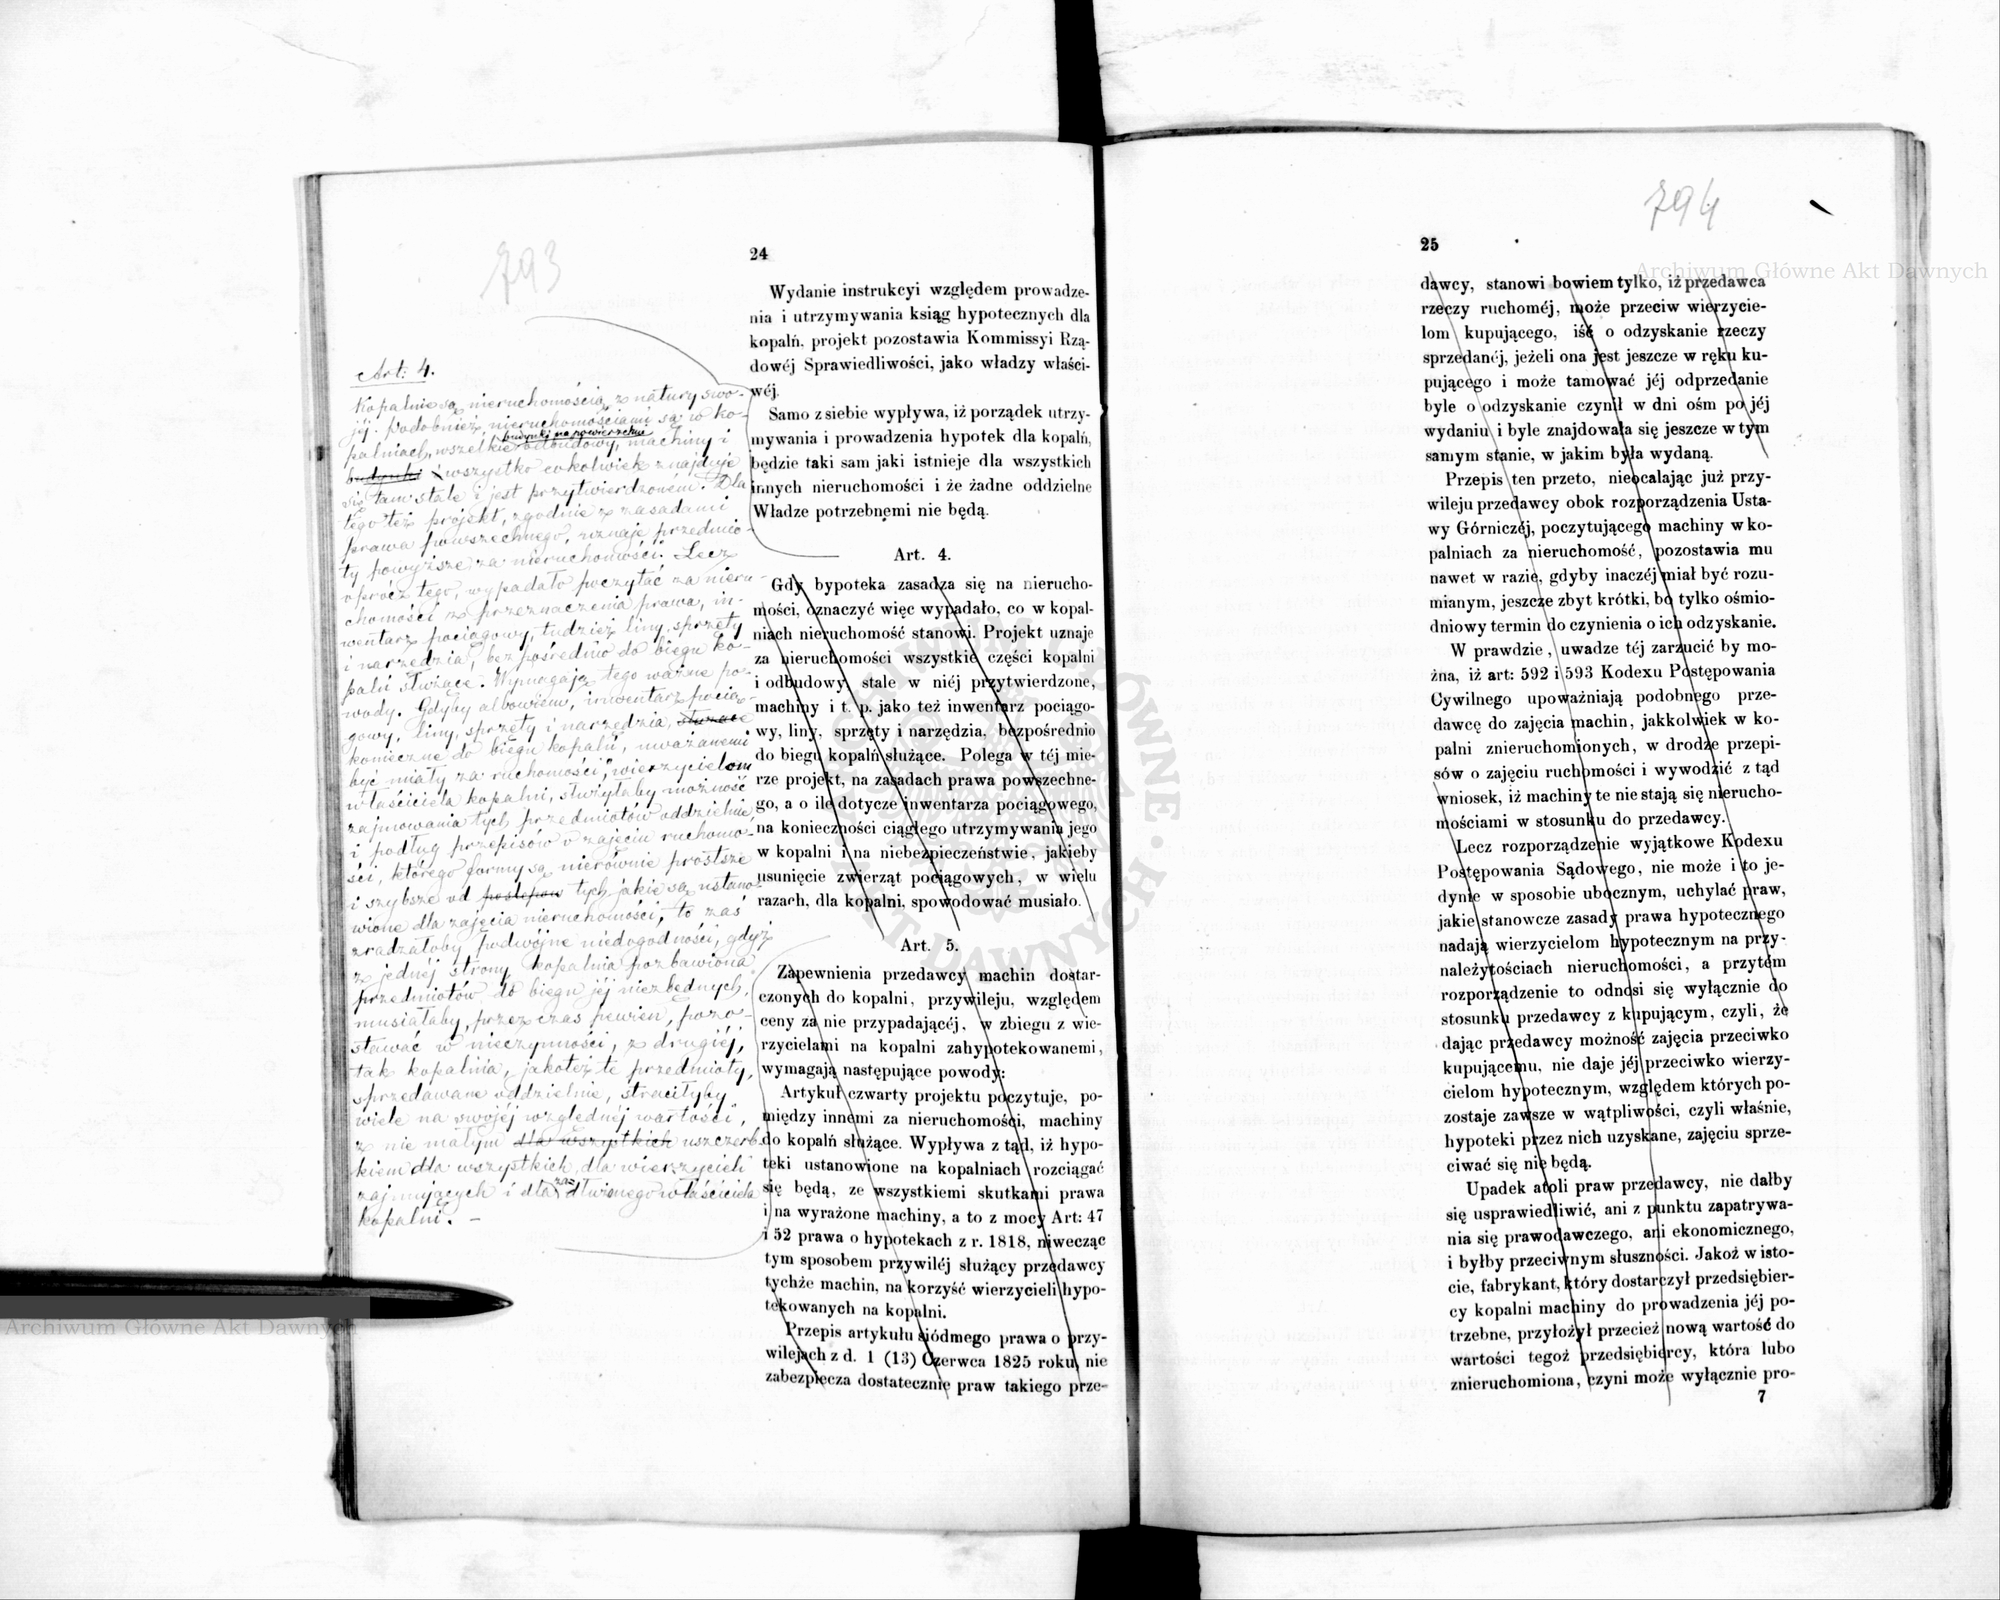 793
24
Art: 4.
Kopalnie są nieruchomością z natury swo-
jéj. Podobnież nieruchomościami są: w ko-
palniach, wszelkie odbudowy, machiny i
budynki na powierzchni
budynki i wszystko cokolwiek znajduje
się tam stale i jest przytwierdzoném. Dla
tego też projekt, zgodnie z zasadami
prawa powszechnego, uznaje przedmio-
ty powyższe za nieruchomości. Lecz
oprócz tego, wypadało poczytać za nieru-
chomości z przeznaczenia prawa, in-
wentarz pociągowy, tudzież liny, sprzęty
i narzędzia, bezpośrednio do biegu ko-
palń służące. Wymagają tego ważne po-
wody. Gdyby albowiem, inwentarz pocią-
gowy, liny, sprzęty i narzędzia, służące
konieczne do biegu kopalń, uważanemi
być miały za ruchomości, wierzycielom
właściciela kopalni, służyłaby możność
zajmowania tych przedmiotów oddzielnie,
i podług przepisów o zajęciu ruchomo-
ści, którego formy są nierównie prostsze
i szybsze od postępow tych jakie są ustano-
wione dla zajęcia nieruchomości, to zaś
zradzałoby podwójne niedogodności, gdyż
z jednéj strony kopalnia pozbawiona
przedmiotów do biegu jéj niezbędnych,
musiałaby, przez czas pewien, pozo-
stawać w nieczynności, z drugiéj,
tak kopalnia, jakotéż te przedmioty,
sprzedawane oddzielnie, straciłyby
wiele na swojéj względnéj wartości,
z nie małym dla wszystkich uszczerb-
kiem dla wszystkich, dla wierzycieli
zajmujących i dla zaś dłużnego właściciela
kopalni. –
Wydanie instrukcyi względem prowadze-
nia i utrzymywania ksiąg hypotecznych dla
kopalń, projekt pozostawia Kommissyi Rzą-
dowéj Sprawiedliwości, jako władzy właści-
wéj.
Samo z siebie wypływa, iż porządek utrzy-
mywania i prowadzenia hypotek dla kopalń,
będzie taki sam jaki istnieje dla wszystkich
innych nieruchomości i że żadne oddzielne
Władze potrzebnemi nie będą.
Art. 4.
Gdy bypoteka zasadza się na nierucho-
mości, oznaczyć więc wypadało, co w kopal-
niach nieruchomość stanowi. Projekt uznaje
za nieruchomości wszystkie części kopalni
i odbudowy, stale w niéj przytwierdzone,
machiny i t. p. jako też inwentarz pociągo-
wy, liny, sprzęty i narzędzia, bezpośrednio
do biegu kopalń służące. Polega w téj mie-
rze projekt, na zasadach prawa powszechne-
go, a o ile dotycze inwentarza pociągowego,
na konieczności ciągłego utrzymywania jego
w kopalni i na niebezpieczeństwie, jakieby
usunięcie zwierząt pociągowych, w wielu
razach, dla kopalni, spowodować musiało.
Art. 5.
Zapewnienia przedawcy machin dostar-
czonych do kopalni, przywileju, względem
ceny za nie przypadającéj, w zbiegu z wie-
rzycielami na kopalni zahypotekowanemi,
wymagają następujące powody:
Artykuł czwarty projektu poczytuje, po-
między innemi za nieruchomości, machiny
do kopalń służące. Wypływa z tąd, iż hypo-
teki ustanowione na kopalniach rozciągać
się będą, ze wszystkiemi skutkami prawa
i na wyrażone machiny, a to z mocy Art: 47
i 52 prawa o hypotekach z r. 1818, niwecząc
tym sposobem przywiléj służący przedawcy
tychże machin, na korzyść wierzycieli hypo-
tekowanych na kopalni.
Przepis artykułu siódmego prawa o przy-
wilejach z d. 1 (13) Czerwca 1825 roku, nie
zabezpiecza dostatecznie praw takiego prze-
794
25
dawcy, stanowi bowiem tylko, iż przedawca
rzeczy ruchoméj, może przeciw wierzycie-
lom kupującego, iść o odzyskanie rzeczy
sprzedanéj, jeżeli ona jest jeszcze w ręku ku-
pującego i może tamować jéj odprzedanie
byle o odzyskanie czynił w dni ośm po jéj
wydaniu i byle znajdowała się jeszcze w tym
samym stanie, w jakim była wydaną.
Przepis ten przeto, nieocalając już przy-
wileju przedawcy obok rozporządzenia Usta-
wy Górniczéj, poczytującego machiny w ko-
palniach za nieruchomość, pozostawia mu
nawet w razie, gdyby inaczéj miał być rozu-
mianym, jeszcze zbyt krótki, bo tylko ośmio-
dniowy termin do czynienia o ich odzyskanie.
W prawdzie, uwadze téj zarzucić by mo-
żna, iż art: 592 i 593 Kodexu Postępowania
Cywilnego upoważniają podobnego prze-
dawcę do zajęcia machin, jakkolwiek w ko-
palni znieruchomionych, w drodze przepi-
sów o zajęciu ruchomości i wywodzić z tąd
wniosek, iż machiny te nie stają się nierucho-
mościami w stosunku do przedawcy.
Lecz rozporządzenie wyjątkowe Kodexu
Postępowania Sądowego, nie może i to je-
dynie w sposobie ubocznym, uchylać praw,
jakie stanowcze zasady prawa hypotecznego
nadają wierzycielom hypotecznym na przy-
należytościach nieruchomości, a przytém
rozporządzenie to odnosi się wyłącznie do
stosunku przedawcy z kupującym, czyli, że
dając przedawcy możność zajęcia przeciwko
kupującemu, nie daje jéj przeciwko wierzy-
cielom hypotecznym, względem których po-
zostaje zawsze w wątpliwości, czyli właśnie,
hypoteki przez nich uzyskane, zajęciu sprze-
ciwać się nie będą.
Upadek atoli praw przedawcy, nie dałby
się usprawiedliwić, ani z punktu zapatrywa-
nia się prawodawczego, ani ekonomicznego,
i byłby przeciwnym słuszności. Jakoż w isto-
cie, fabrykant, który dostarczył przedsiębier-
cy kopalni machiny do prowadzenia jéj po-
trzebne, przyłożył przecież nową wartość do
wartości tegoż przedsiębiercy, która lubo
znieruchomiona, czyni może wyłącznie pro-
7
Archiwum Główne Akt Dawnych
Archiwum Główne Akt Dawnych
ARCHIWUM GŁÓWNE AKT DAWNYCH